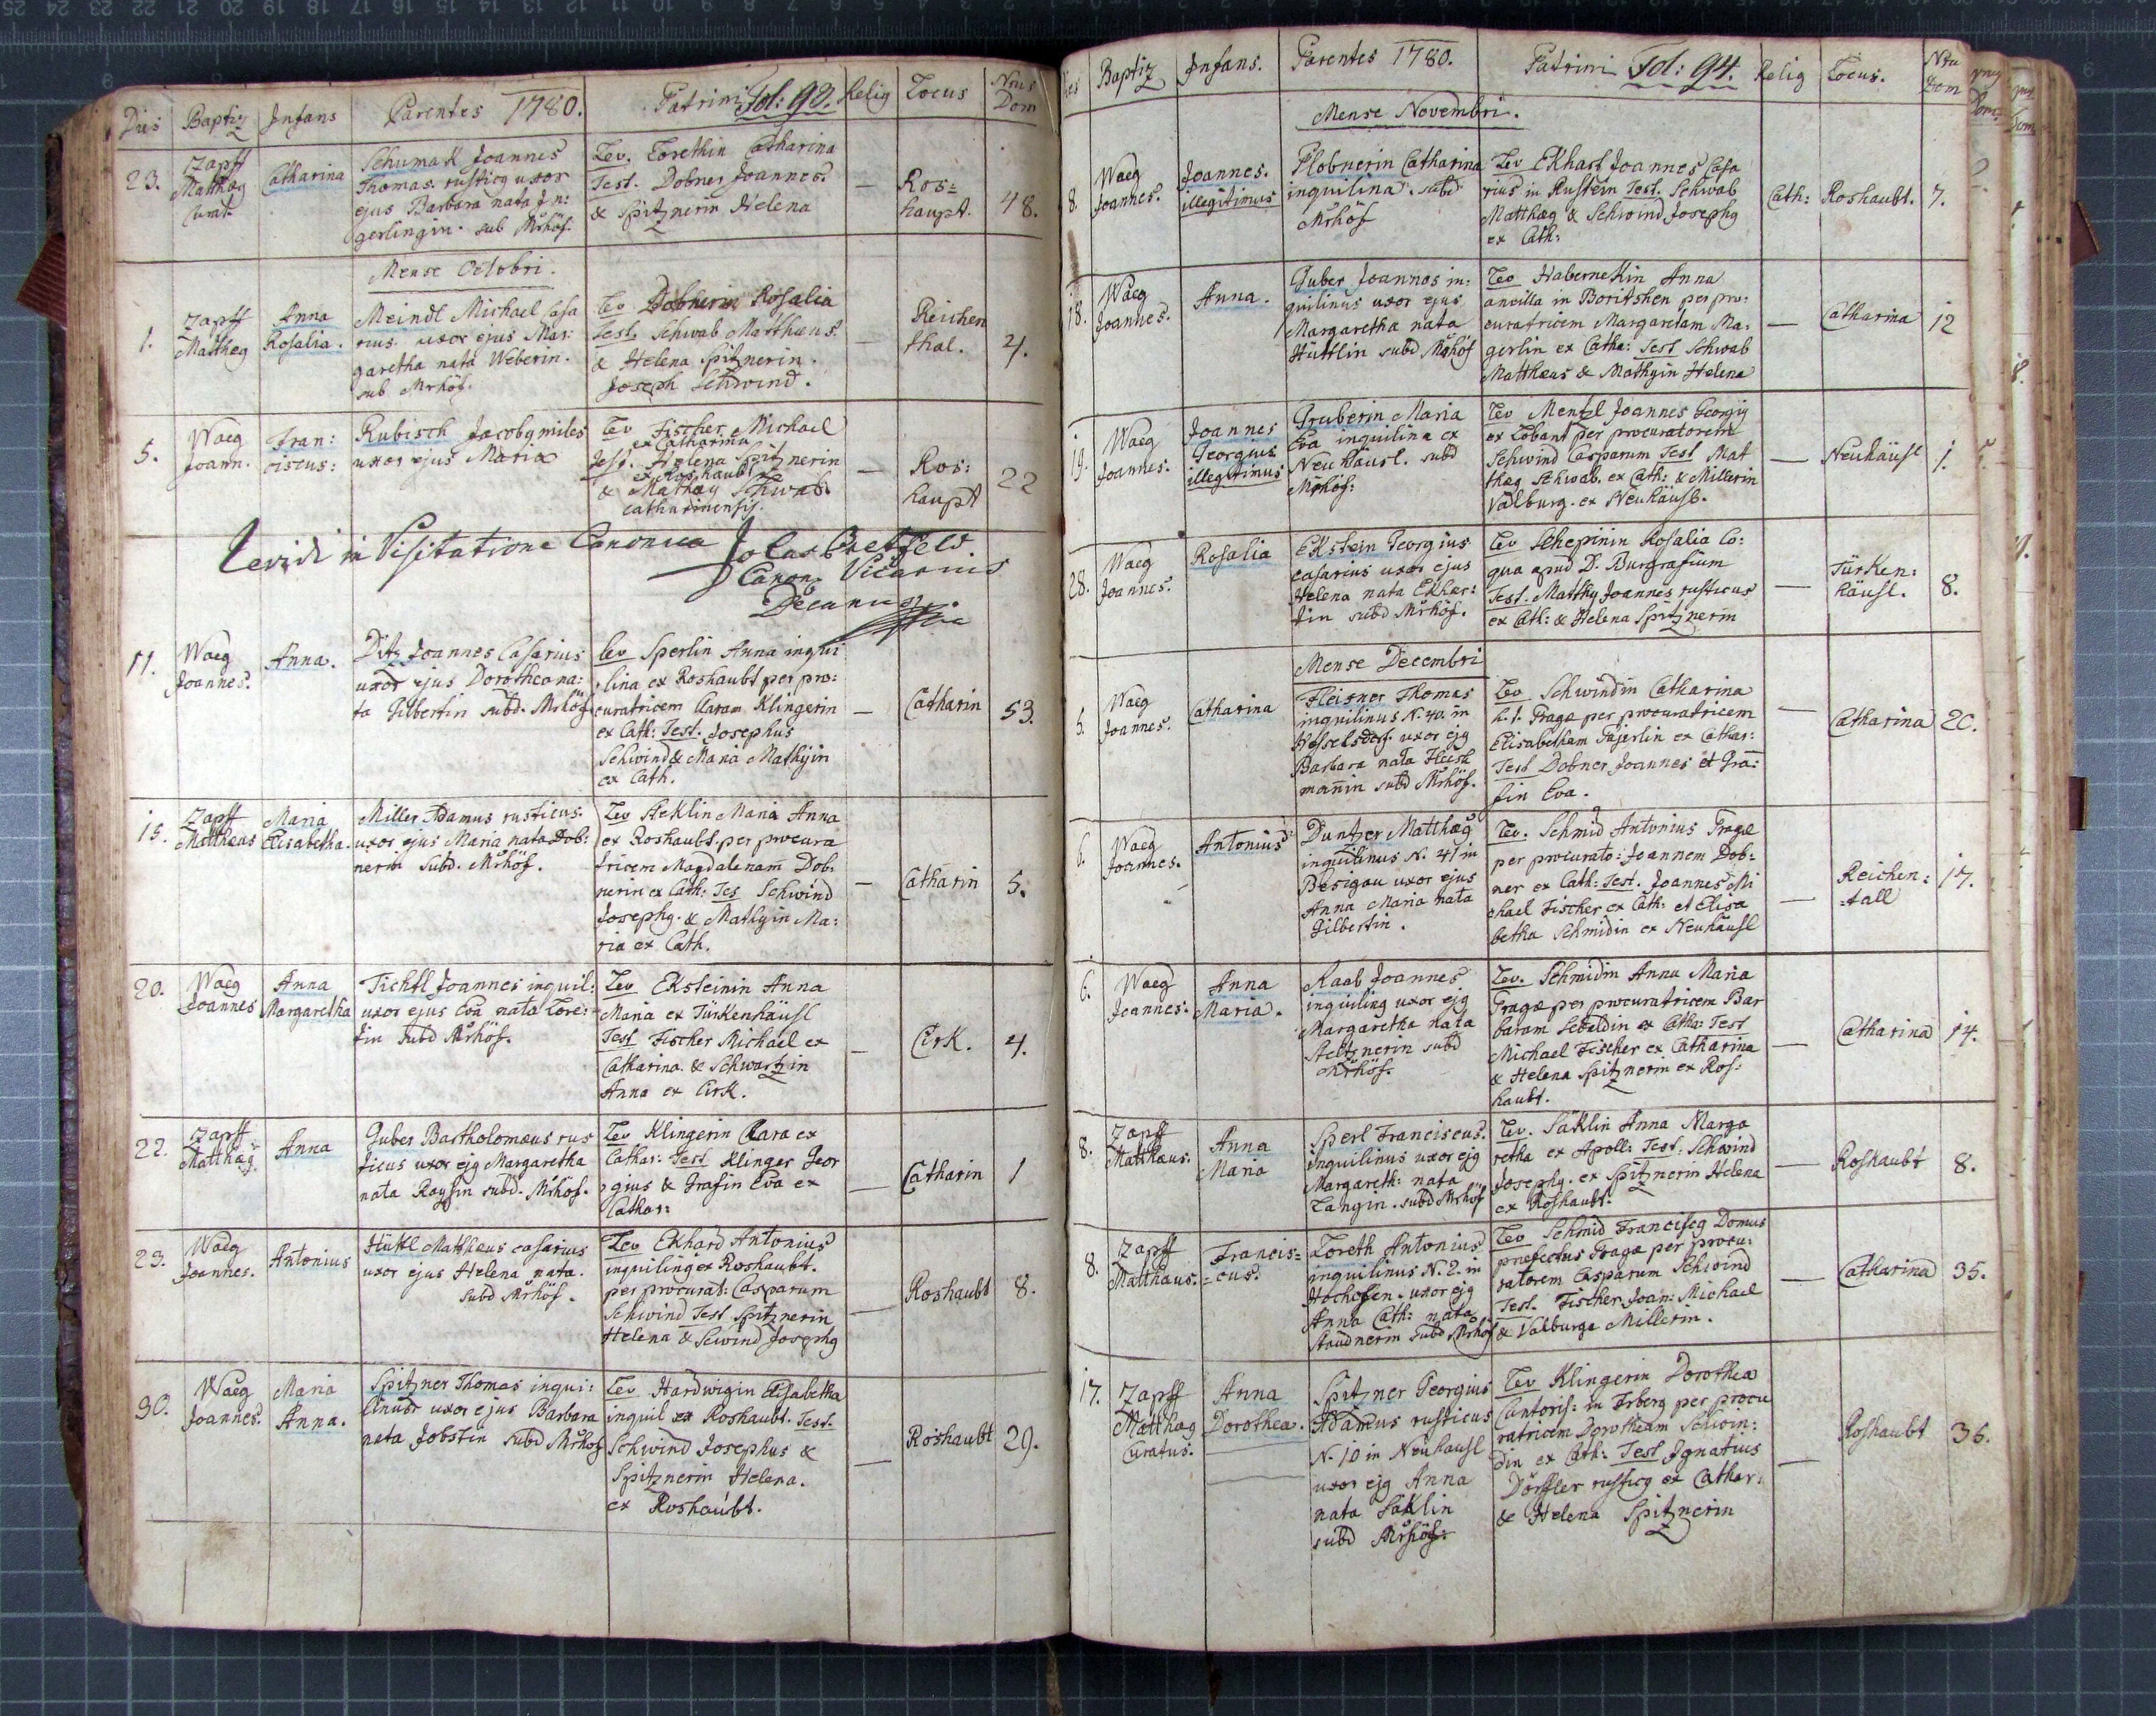 Dies Baptiz Infans Parentes 1780. Patrini Fol: 93. Relig Locus Nrus Dom
23. Zapff Matthæg Curat. Catharina
Schumak Joannes
Thomas rusticq uxor
ejus Barbara nata In:
gerlingin. sub Mrhöf.
Lev. Lorethin Catharina
Test. Dobner Joannes
& Spitznerin Helena
— Ros=
haupt. 48.
Mense Octobri.
1. Zapff Mattheg Anna Rosalia.
Meindl Michael casa
rius uxor ejus Mar:
garetha nata Weberin.
sub Mrhöf.
Lev Dobnerin Rosalia
Test. Schwab Matthæus
& Helena Spitznerin.
Joseph Schwind.
— Reichen
thal. 4.
5. Waeg Joann. Fran:
ciscus:
Rubisch Jacobg miles
uxor ejus Maria
Lev Fischer Michael
ex Catharina
Test. Helena Spitznerin
ex Roshaubt
& Mathæy Schwab
catharinensis.
— Ros:
haupt 22
Revidi in Visitatione Canonica
Canon. Vicarius
Decanus
11. Waeg Joannes. Anna.
Ditz Joannes Casarius
uxor ejus Dorothea na:
ta Gilbertin subd. Mrhöf
Lev Sperlin Anna inqui
lina ex Roshaubt per pro:
curatricem Claram Klingerin
ex Cath: Test. Josephus
Schwind & Maria Mathyin
ex Cath.
— Catharin 53.
15. Zapff Matthæus Maria Elisabetha.
Miller Adamus rusticus.
uxor ejus Maria nata Dob:
nerin subd. Mrhöf.
Lev Heklin Maria Anna
ex Roshaubt per procura
tricem Magdalenam Dob:
nerin ex Cath: Tes Schwind
Josephg. & Mathyin Ma:
ria ex Cath.
— Catharin 5.
20. Waeg Joannes Anna Margaretha
Tichtl Joannes inquil:
uxor ejus Eva nata Lore:
tin subd Mrhöf.
Lev Eksteinin Anna
Maria ex Türkenhäusl
Test Fischer Michael ex
Catharina. & Schwartzin
Anna ex Cirk.
— Cirk. 4.
22. Zapff Matthæg. Anna
Guber Bartholomæus rus
ticus uxor ejg Margaretha
nata Raysin subd. Mrhöf.
Lev Klingerin Clara ex
Cathar: Test Klinger Geor
gius & Grafin Eva ex
Cathar:
— Catharin 1
23. Waeg Joannes. Antonius
Hüttl Matthæus casarius
uxor ejus Helena nata.
subd Mrhöf.
Lev Ekhard Antonius
inquiling ex Roshaubt.
per procurat: Casparum
Schwind Test Spitznerin
Helena & Sewind Josephg
— Roshaubt 8.
30. Waeg Joannes. Maria Anna.
Spitzner Thomas inqui:
linus uxor ejus Barbara
nata Jobstin subd Mrhöf
Lev Hardwigin Elisabetha
inquil ex Roshaubt. Test.
Schwind Josephus &
Spitznerin Helena.
ex Roshaubt.
— Roshaubt 29.
Dies Baptiz Infans. Parentes 1780. Patrini Fol: 94. Relig Locus. Nru Dom
Mense Novembri.
8. Waeg Joannes. Joannes. illegitimus
Plobnerin Catharina
inquilina. subd
Mrhöf
Lev Ekhart Joannes Casa
rius in Rustein Test. Schwab
Matthæg & Schwind Josephg
ex Cath:
Cath: Roshaubt. 7.
18. Waeg Joannes. Anna.
Guber Joannes in:
quilinus uxor ejus
Margaretha nata
Hüttlin subd Mrhöf
Lev Habernekin Anna
ancilla in Boritshen per pro:
curatricem Margaretam Ma:
gerlin ex Catha: Test Schwab
Matthæus & Mathyin Helena
— Catharina 12
19. Waeg Joannes. Joannes Georgius illegitimus
Gruberin Maria
Eva inquilina ex
Neuhäusl. subd
Mrhöf:
Lev Mentzl Joannes Georgig
ex Lobant per procuratorem
Schwind Casparum Test Mat
thæg Schwab. ex Cath: & Millerin
Valburg. ex Neuhäusl.
— Neuhäusl 1.
28. Waeg Joannes. Rosalia
Ekstein Georgius
casarius uxor ejus
Helena nata Ekhar:
tin subd Mrhöf.
Lev Schepinin Rosalia Co:
qua apud D. Burgrafium
Test. Matthy Joannes rusticus
ex Cath: & Helena Spitznerin
— Türken:
häusl. 8.
Mense Decembri
5. Waeg Joannes. Catharina
Fleisner Thomas
inquilinus N. 40 in
Hesselsdorf uxor ejg
Barbara nata Fleisch
manin subd Mrhöf.
Lev Schwindin Catharina
h. t. Pragæ per procuratricem
Elisabetham Pajerlin ex Cathar:
Test Dobner Joannes et Gra:
fin Eva.
— Catharina 20.
6. Waeg Joannes. Antonius
Duntzer Matthæg
inquilinus N. 41 in
Besigau uxor ejus
Anna Maria nata
Gilbertin.
Lev. Schmid Antonius Pragæ
per procurato: Joannem Dob:
ner ex Cath: Test. Joannes Mi
chael Fischer ex Cath: et Elisa
betha Schmidin ex Neuhäusl
— Reichen:
tall 17.
6. Waeg Joannes. Anna Maria.
Raab Joannes
inquiling uxor ejg
Margaretha nata
Steltznerin subd
Mrhöf.
Lev. Schmidin Anna Maria
Pragæ per procuratricem Bar
baram Sebaldin ex Catha: Test
Michael Fischer ex Catharina
& Helena Spitznerin ex Ros:
haubt.
— Catharina 14.
8. Zapff Matthæus. Anna Maria
Sperl Franciscus.
inquilinus uxor ejg
Margareth: nata
Langin. subd Mrhöf
Lev. Säklin Anna Marga
retha ex Apoll: Test. Schwind
Josephg. ex Spitznerin Helena
ex Roshaubt.
— Roshaubt 8.
8. Zapff Matthæus. Francis=
=cus.
Loreth Antonius
inquilinus N. 2. in
Hochofen. uxor ejg
Anna Cath: nata
Staudnerin subd Mrhöf
Lev Schmid Franciscg Domus
præfectus Pragæ per procu:
ratorem Casparum Schwind
Test. Fischer Joan: Michael
& Valburga Millerin.
— Catharina 35.
17. Zapff Matthæg Curatus. Anna Dorothea.
Spitzner Georgius
Adamus rusticus
N. 10 in Neuhäusl
uxor ejg Anna
nata Säklin
subd Mrhöf.
Lev Klingerin Dorothea
Cantoris: in Frberg per procu
ratricem Dorotheam Schwin:
din ex Cath: Test Ignatius
Dörfler rusticg ex Cathar:
& Helena Spitznerin
— Roshaubt 36.